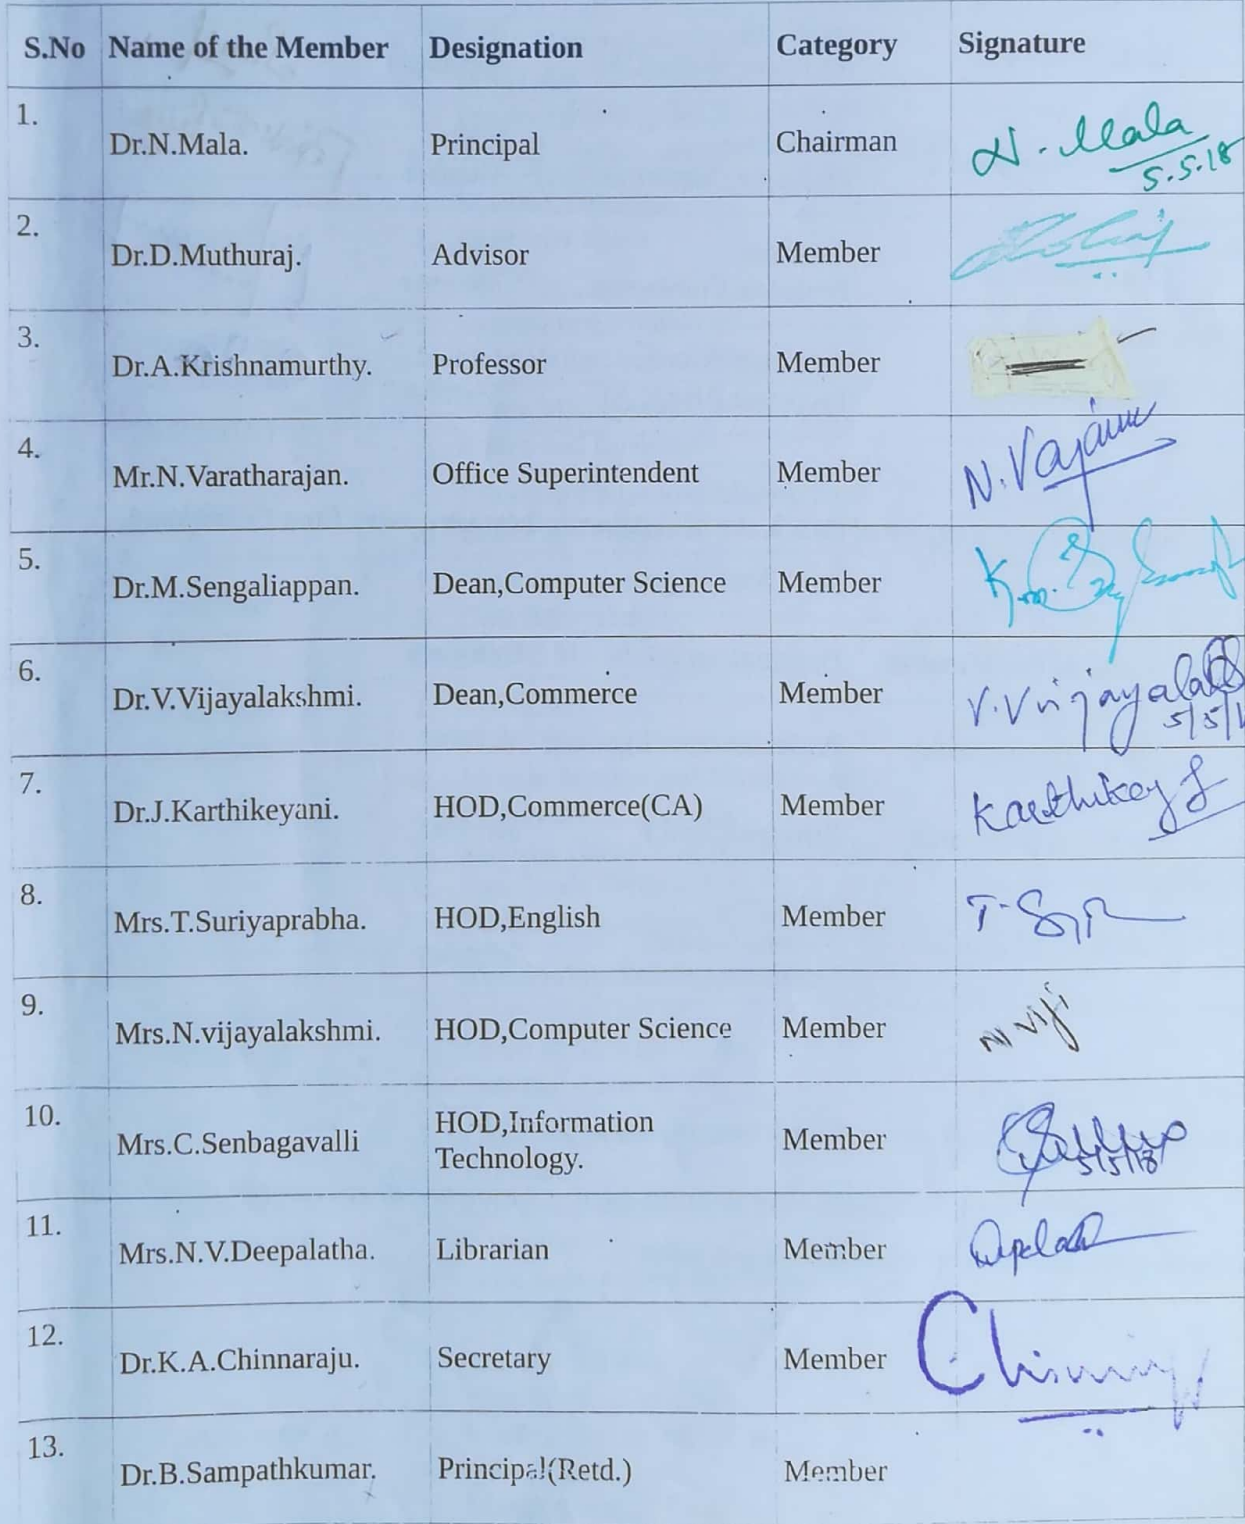 S.No Name of the Member Designation Category Signature
1. Dr.N.Mala. Principal Chairman N. Mala
5.5.18
2. Dr.D.Muthuraj. Advisor Member
3. Dr.A.Krishnamurthy. Professor Member
4. Mr.N.Varatharajan. Office Superintendent Member
5. Dr.M.Sengaliappan. Dean,Computer Science Member
6. Dr.V.Vijayalakshmi. Dean,Commerce Member
7. Dr.J.Karthikeyani. HOD,Commerce(CA) Member
8. Mrs.T.Suriyaprabha. HOD,English Member
9. Mrs.N.vijayalakshmi. HOD,Computer Science Member N Viji
10. Mrs.C.Senbagavalli HOD,Information
Technology. Member
5/5/18
11. Mrs.N.V.Deepalatha. Librarian Member
12. Dr.K.A.Chinnaraju. Secretary Member
13. Dr.B.Sampathkumar. Principal(Retd.) Member